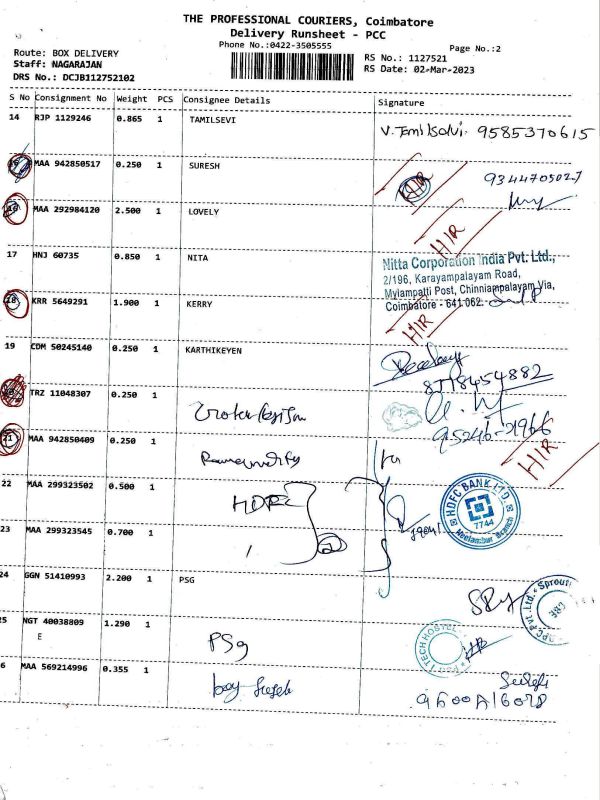 THE PROFESSIONAL COURIERS, Coimbatore
Delivery Runsheet - PCC
Phone No.:0422-3505555
Page No.:2
Route: BOX DELIVERY
Staff: NAGARAJAN
DRS No.: DCJB112752102
RS No.: 1127521
RS Date: 02-Mar-2023
S No Consignment No Weight PCS Consignee Details Signature
14 RJP 1129246 0.865 1 TAMILSEVI V.Tamilselvi. 9585370615
15 MAA 942850517 0.250 1 SURESH HIR 9344705027
16 MAA 292984120 2.500 1 LOVELY HIR
17 HNJ 60735 0.850 1 NITA
Nitta Corporation India Pvt. Ltd.,
2/196, Karayampalayam Road,
Mylampatti Post, Chinniampalayam Via,
Coimbatore - 641 062.
18 KRR 5649291 1.900 1 KERRY HIR
19 CDM 50245140 0.250 1 KARTHIKEYEN
8778454882
20 TRZ 11048307 0.250 1
95246-21966
21 MAA 942850409 0.250 1 HIR
22 MAA 299323502 0.500 1 HDFC
HDFC BANK LTD.
7744
Neelambur Branch
23 MAA 299323545 0.700 1
24 GGN 51410993 2.200 1 PSG
25 NGT 40038809 1.290 1
E
PSG
TECH HOSTEL
26 MAA 569214996 0.355 1